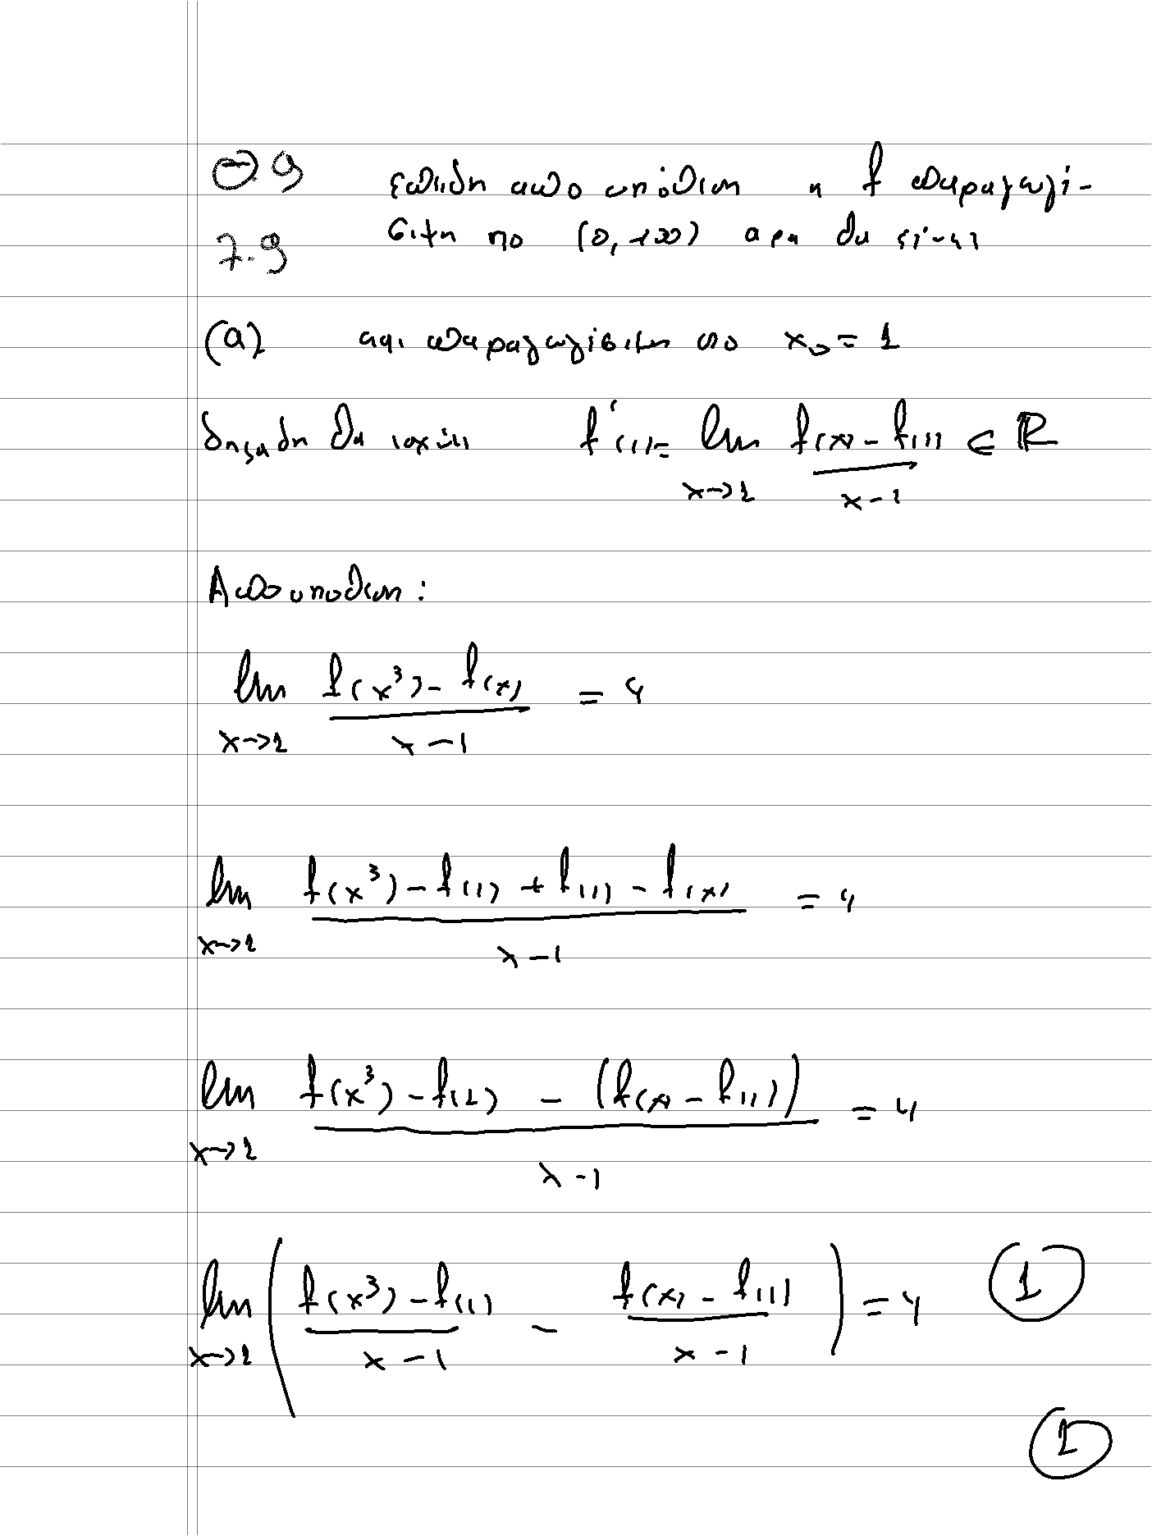 Θ 9 επειδη απο υπόθεση η f παραγωγί-
7.9 σιμη στο (0, +∞) αρα θα είναι
(α) και παραγωγίσιμη στο x₀ = 1
δηλαδη θα ισχύει f'(1) = lim x→1 (f(x) - f(1))/(x - 1) ∈ ℝ
Απο υποθεση :
lim x→1 (f(x³) - f(x))/(x - 1) = 4
lim x→1 (f(x³) - f(1) + f(1) - f(x))/(x - 1) = 4
lim x→1 (f(x³) - f(1) - (f(x) - f(1)))/(x - 1) = 4
lim x→1 ( (f(x³) - f(1))/(x - 1) - (f(x) - f(1))/(x - 1) ) = 4 ①
①